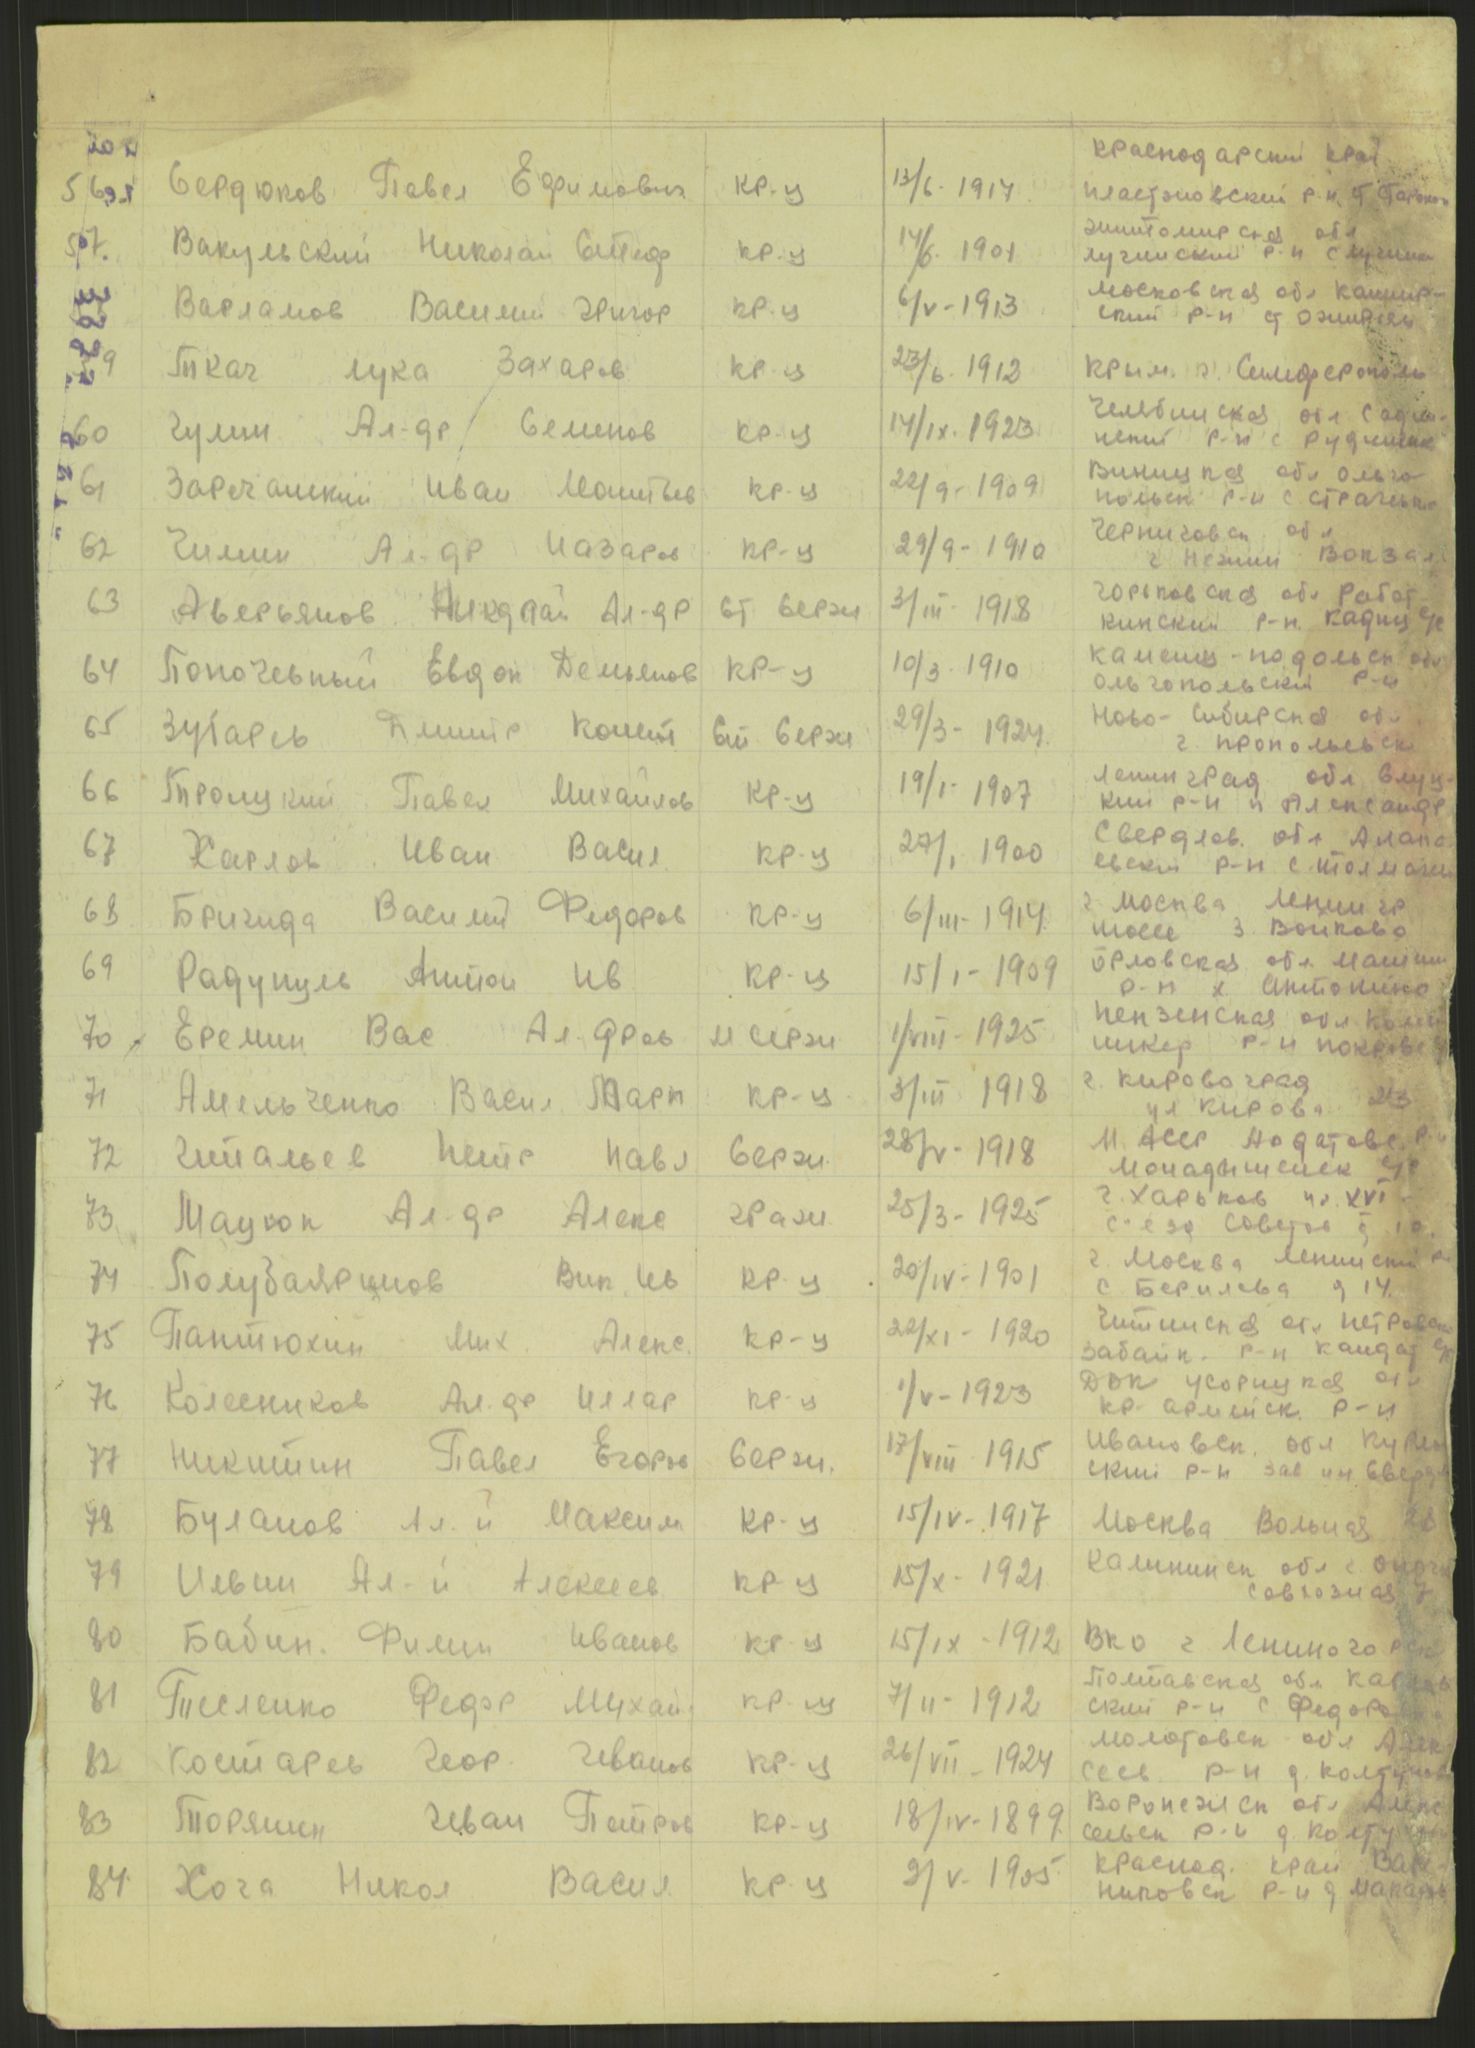 Краснодарский край
56 Сердюков Павел Ефимович кр-ц 13/6-1917 пластуновский р-н
57. Вакульский Николай Степ кр-ц 14/6-1901 житомирская обл
р-н с
Варламов Василий Григор кр-ц 6/V-1913 московская обл кашир-
ский р-н ст ожирелы
59 Ткач лука Захаров кр-ц 23/6-1912 Крым. г. Симферополь
60 Чулин Ал-др Семенов кр-ц 14/IX-1923 Челябинская обл
р-н с Рудничн
61 Заречанский Иван Моитеев кр-ц 22/9-1909 Виницкая обл Ольго-
польск р-н с
62 Чилин Ал-др Назаров кр-ц 29/9-1910 Черниговск обл
г Нежин Вокзал
63 Аверьянов Николай Ал-др ст сержи 3/III-1918 горьковская обл Работ-
кинский р-н кадниц с/с
64 Попочевный Евдок Демьянов кр-ц 10/3-1910 каменц-подольск обл
ольгопольский р-н
65 Зубарев Дмитр Конст ст сержи 29/3-1924 Ново-Сибирская обл
г. прокопьевск
66 Троицкий Павел Михайлов кр-ц 19/I-1907 Ленинград обл слуц-
кий р-н п Александр
67 Харлов Иван Васил кр-ц 27/I 1900 Свердлов. обл Алапа-
евский р-н с. толмачи
68 Бригида Василий Федоров кр-ц 6/III-1914 г Москва Ленингр
шоссе з Войково
69 Радупуль Антон Ив кр-ц 15/I-1909 орловская обл
р-н х Антонино
70 Еремин Вас Ал-дров м сержи 1/VIII-1925 пензенская обл
р-н покровс
71 Амельченко Васил Марк кр-ц 3/III 1918 г. кировоград
ул Кирова 23
72 Читальев Петр Павл Сержи 28/V-1918 М. АССР
с/с
73 Мацюк Ал-др Алекс гражи 25/3-1925 г. Харьков ул. XVI-
съезд Советов д 10.
74 Полубаяринов Вик Ив кр-ц 20/IV-1901 г. Москва Ленинский р-
с Берилева д 14.
75 Пантюхин Мих. Алекс. кр-ц 22/XI-1920 Читинская обл петровско
забайк. р-н с/с
76 Колесников Ал-др Иллар кр-ц 1/V-1923 ДВК усорицкая обл
кр-армейск. р-н
77 Никитин Павел Егоров Сержи. 17/VIII 1915 Ивановск. обл
ский р-н зав им Свердл
78 Буланов Ал-й Максим кр-ц 15/IV-1917 Москва Вольная 28
79 Ильин Ал-й Алексеев кр-ц 15/X-1921 Калининск обл г опоч
совхозная 7
80 Бабин. Филип Иванов кр-ц 15/IX-1912 ВКО г Лениногорск
81 Тесленко Федор Михай кр-ц 7/II-1912 Полтавская обл Карлов-
ский р-н с Федоровка
82 Костарев Геор. Иванов кр-ц 26/VII-1924 молотовск обл Алек
сеев р-н д. колтунов
83 Торянин Иван Петров кр-ц 18/IV-1899 Воронежск обл Алек
сеевск р-н д. колту
84 Хога Никол Васил кр-ц 2/V-1905 Краснод. край Вар-
никовск р-н д